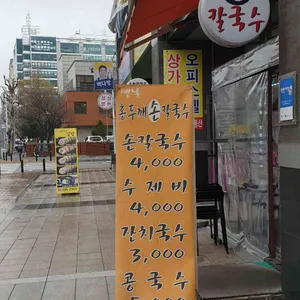 칼국수
상가
오피스텔
홍두깨손칼국수
손칼국수
4,000
수제비
4,000
잔치국수
3,000
콩국수